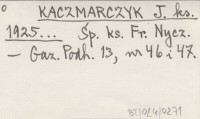 KACZMARCZYK J. ks.
1925... Śp. ks. Fr. Nycz.
— Gaz. Podh. 13, nr 46 i 47.
BT/014/0271